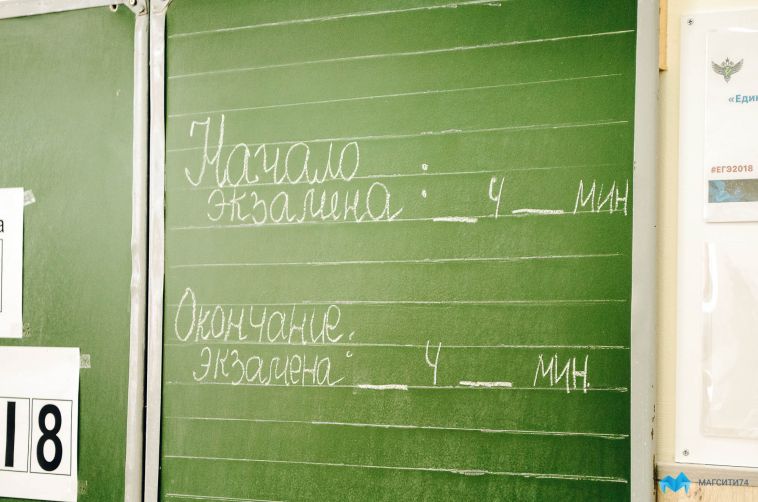 Начало
экзамена: __ ч __ мин
Окончание
экзамена: __ ч __ мин.
а
18
#ЕГЭ2018
МАГСИТИ74